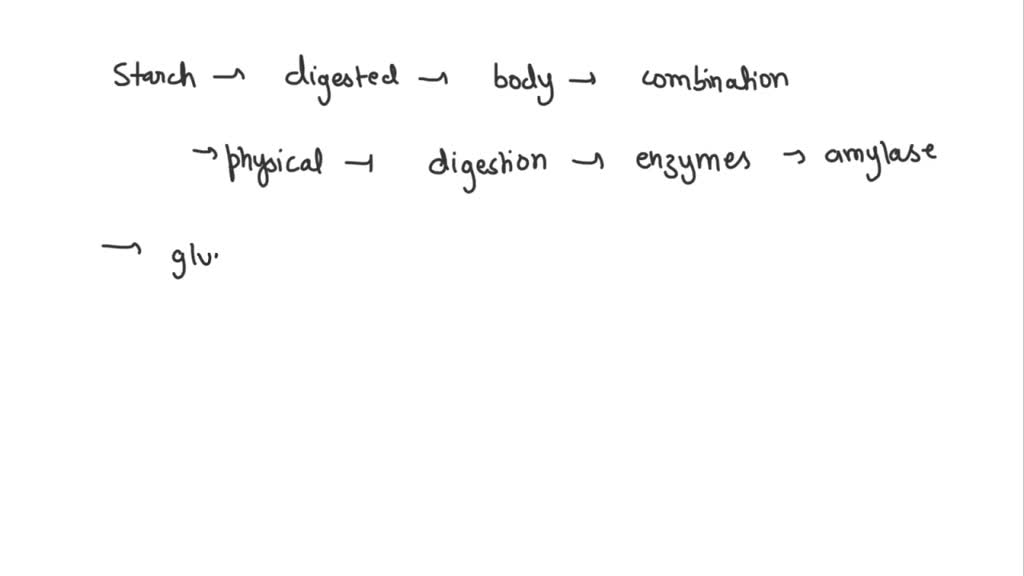 Starch → digested → body → combination
→ physical → digestion → enzymes → amylase
→ glu